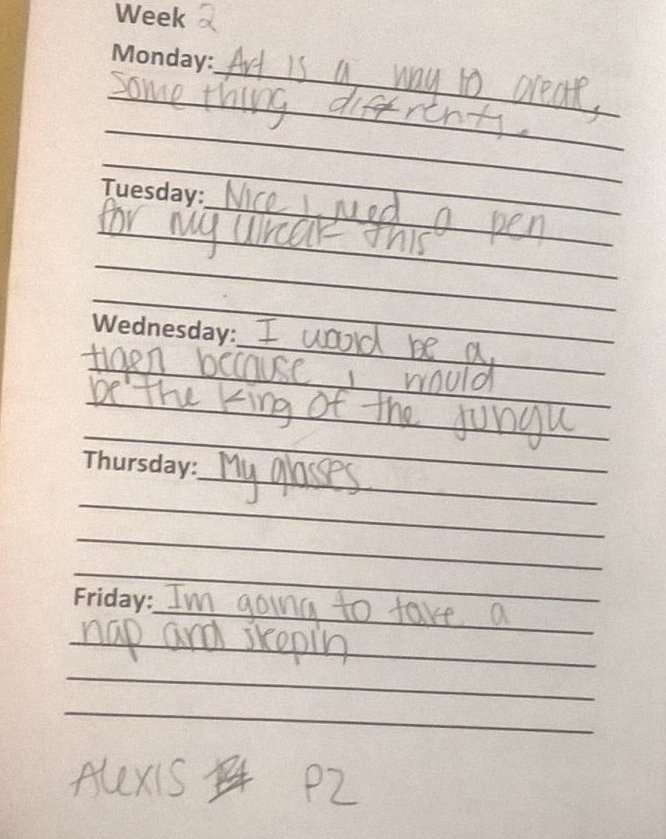 Week 2
Monday: Art is a way to create,
some thing diffrenty.
Tuesday: Nice I need a pen
for my wreak this
Wednesday: I woord be a
tigen because I would
be the king of the jungle
Thursday: My glasses
Friday: Im going to take a
nap and sleepin
Alexis P2